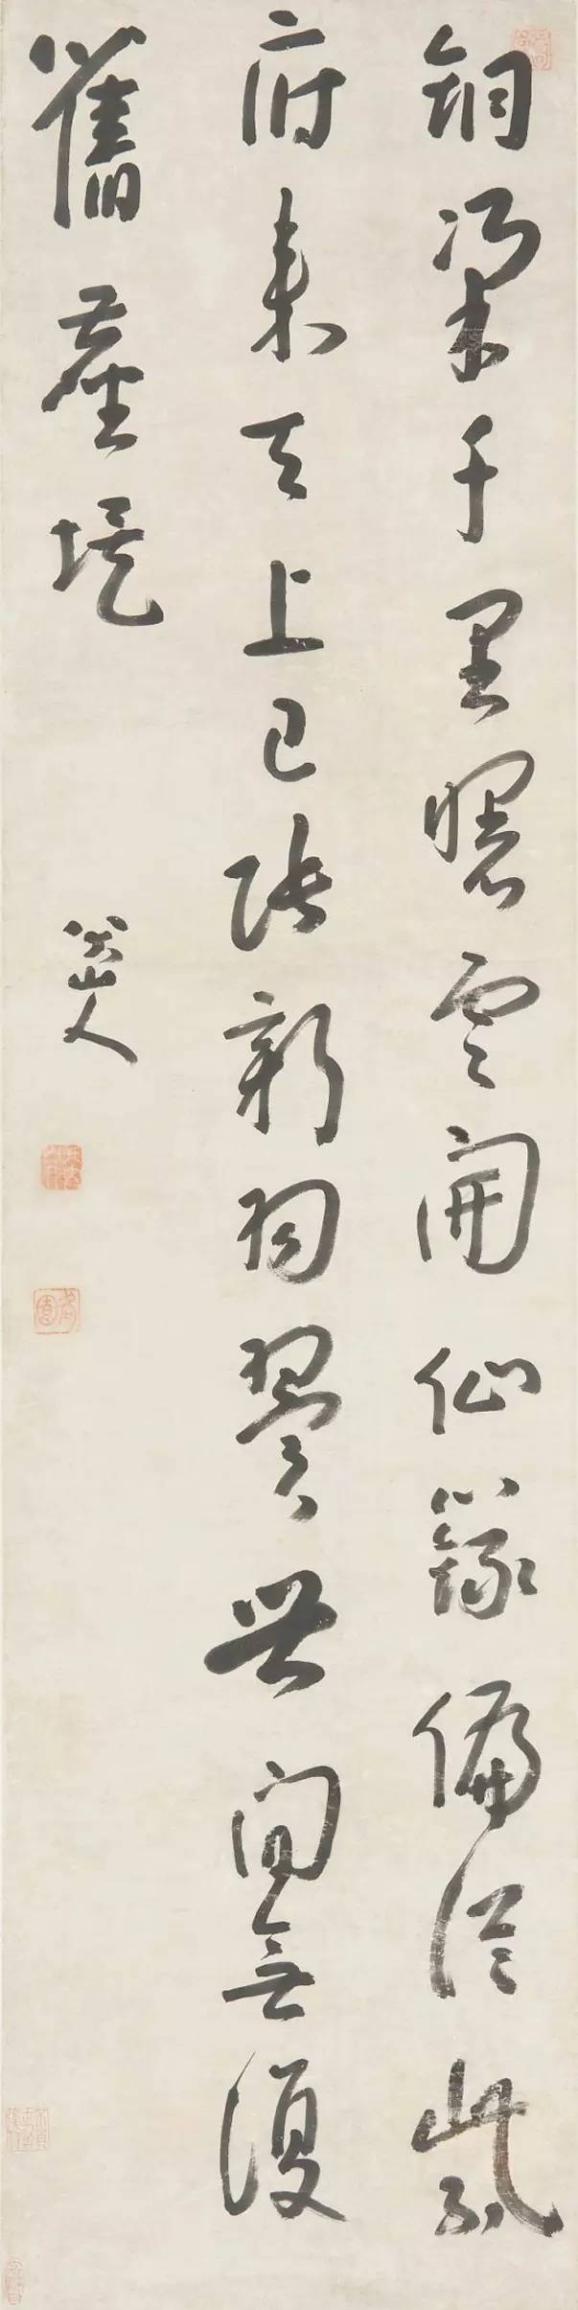 銅梁千里曙雲開仙籙偏從紫
府來天上已張新羽翼世間無復
舊塵埃
八大山人
何園